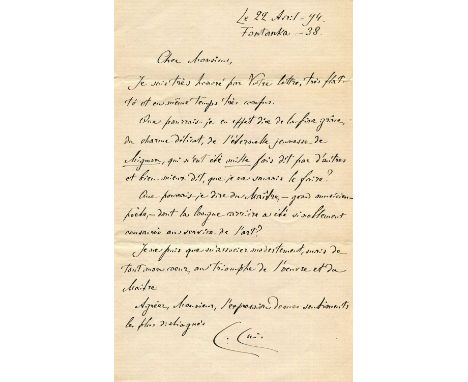 Le 22 Avril - 94
Fontanka - 38.
Cher Monsieur,
Je suis très honoré par Votre lettre, très flat-
té et en même temps très confus.
Que pourrais-je en effet dire de la fine grâce,
du charme délicat, de l'éternelle jeunesse de
Mignon, qui n'ent été mille fois dit par d'autres
et bien mieux dit, que je ne saurais le faire?
Que pourrais-je dire du Maître, - grand musicien-
poète, - dont la longue carrière a été si noblement
consacrée au service de l'art?
Je ne puis que m'associer modestement, mais de
tout mon coeur, au triomphe de l'oeuvre et du
Maître
Agréez, Monsieur, l'expression de mes sentiments
les plus distingués
C. Cui.